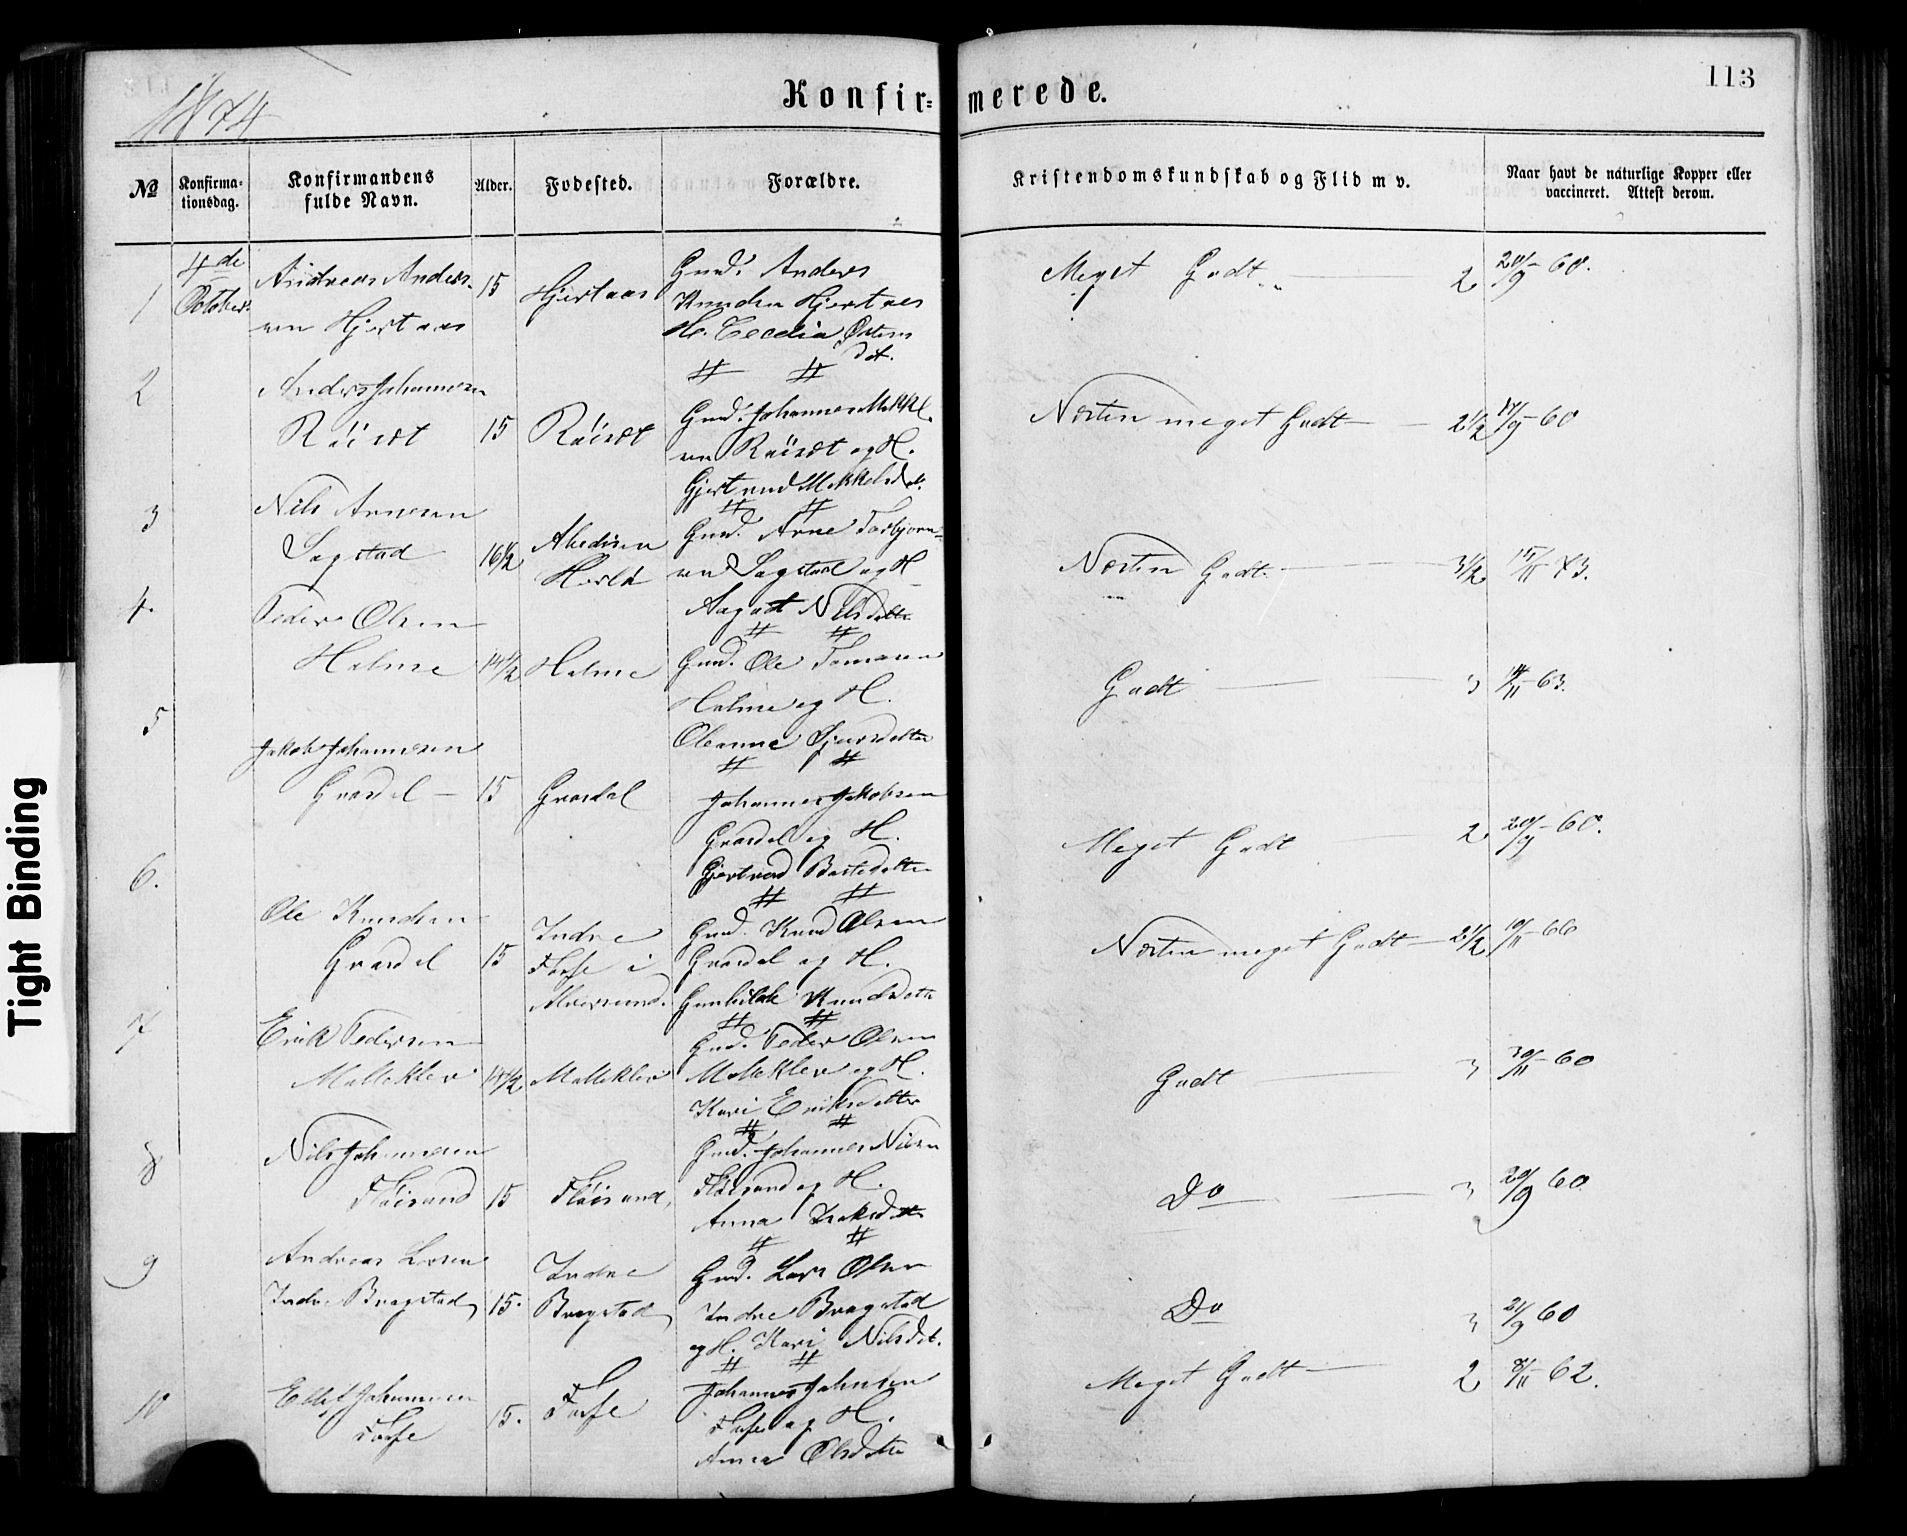 Tight Binding
1874
Konfir=
merede.
113
No
Konfirma-
tionsdag.
Konfirmandens
fulde Navn.
Alder.
Fødested.
Forældre.
Kristendomskundskab og Flid m v.
Naar havt de naturlige Kopper eller
vaccineret. Attest derom.
1
4de
October
Andreas Anders-
sen Hjertaas
15
Hjertaas
Gmd. Anders
Knudsen Hjertaas
H. Cecelia
Meget Godt
2
20/9-60.
2
Anders Johannesen
15
Gmd. Johannes Mikkel-
sen og H.
Gjertrud Mikkelsd.
Næsten meget Godt
2 1/2
/9-60
3
Nils Arnesen
Sagstad
16 1/2
Gmd. Arne Torbjørn-
sen Sagstad og H
Nilsdatter
Næsten Godt.
3 1/2
15/11 73.
4.
Peder Olsen
Holme
14 1/2
Holme
Gmd. Ole Tomasen
Holme og H.
Oleanne Sjursdatter
Godt
3
14/11-63.
5
Jakob Johannesen
15
Johannes Jakobsen
og H.
Gjertrud
Meget Godt
2
20/9-60.
6.
Ole Knudsen
15
Indre
Fosse i
Alversund.
Gmd. Knud Olsen
og H.
Gunhilde Knudsdatter
Næsten meget Godt
2 1/2
10/11-66
7
Erik Pedersen
Molleklev
14 1/2
Molleklev
Gmd. Peder Olsen
Molleklev og H.
Kari Eriksdatter
Godt
3
30/11-60
8
Nils Johannesen
Fløisand
15
Fløisand,
Gmd. Johannes Nilsen
Fløisand og H.
Anna Isaksdatter
Do
3
20/9 60
9
Andreas Larsen
Indre Bragstad
15.
Indre
Bragstad
Gmd. Lars Olsen
Indre Bragstad
og H. Kari Nilsdt.
Do
3
21/9 60
10
Johannesen
Fosse
15.
Fosse
Johannes Johnsen
Fosse og H.
Anna Olsdatter
Meget Godt
2
8/11 62.